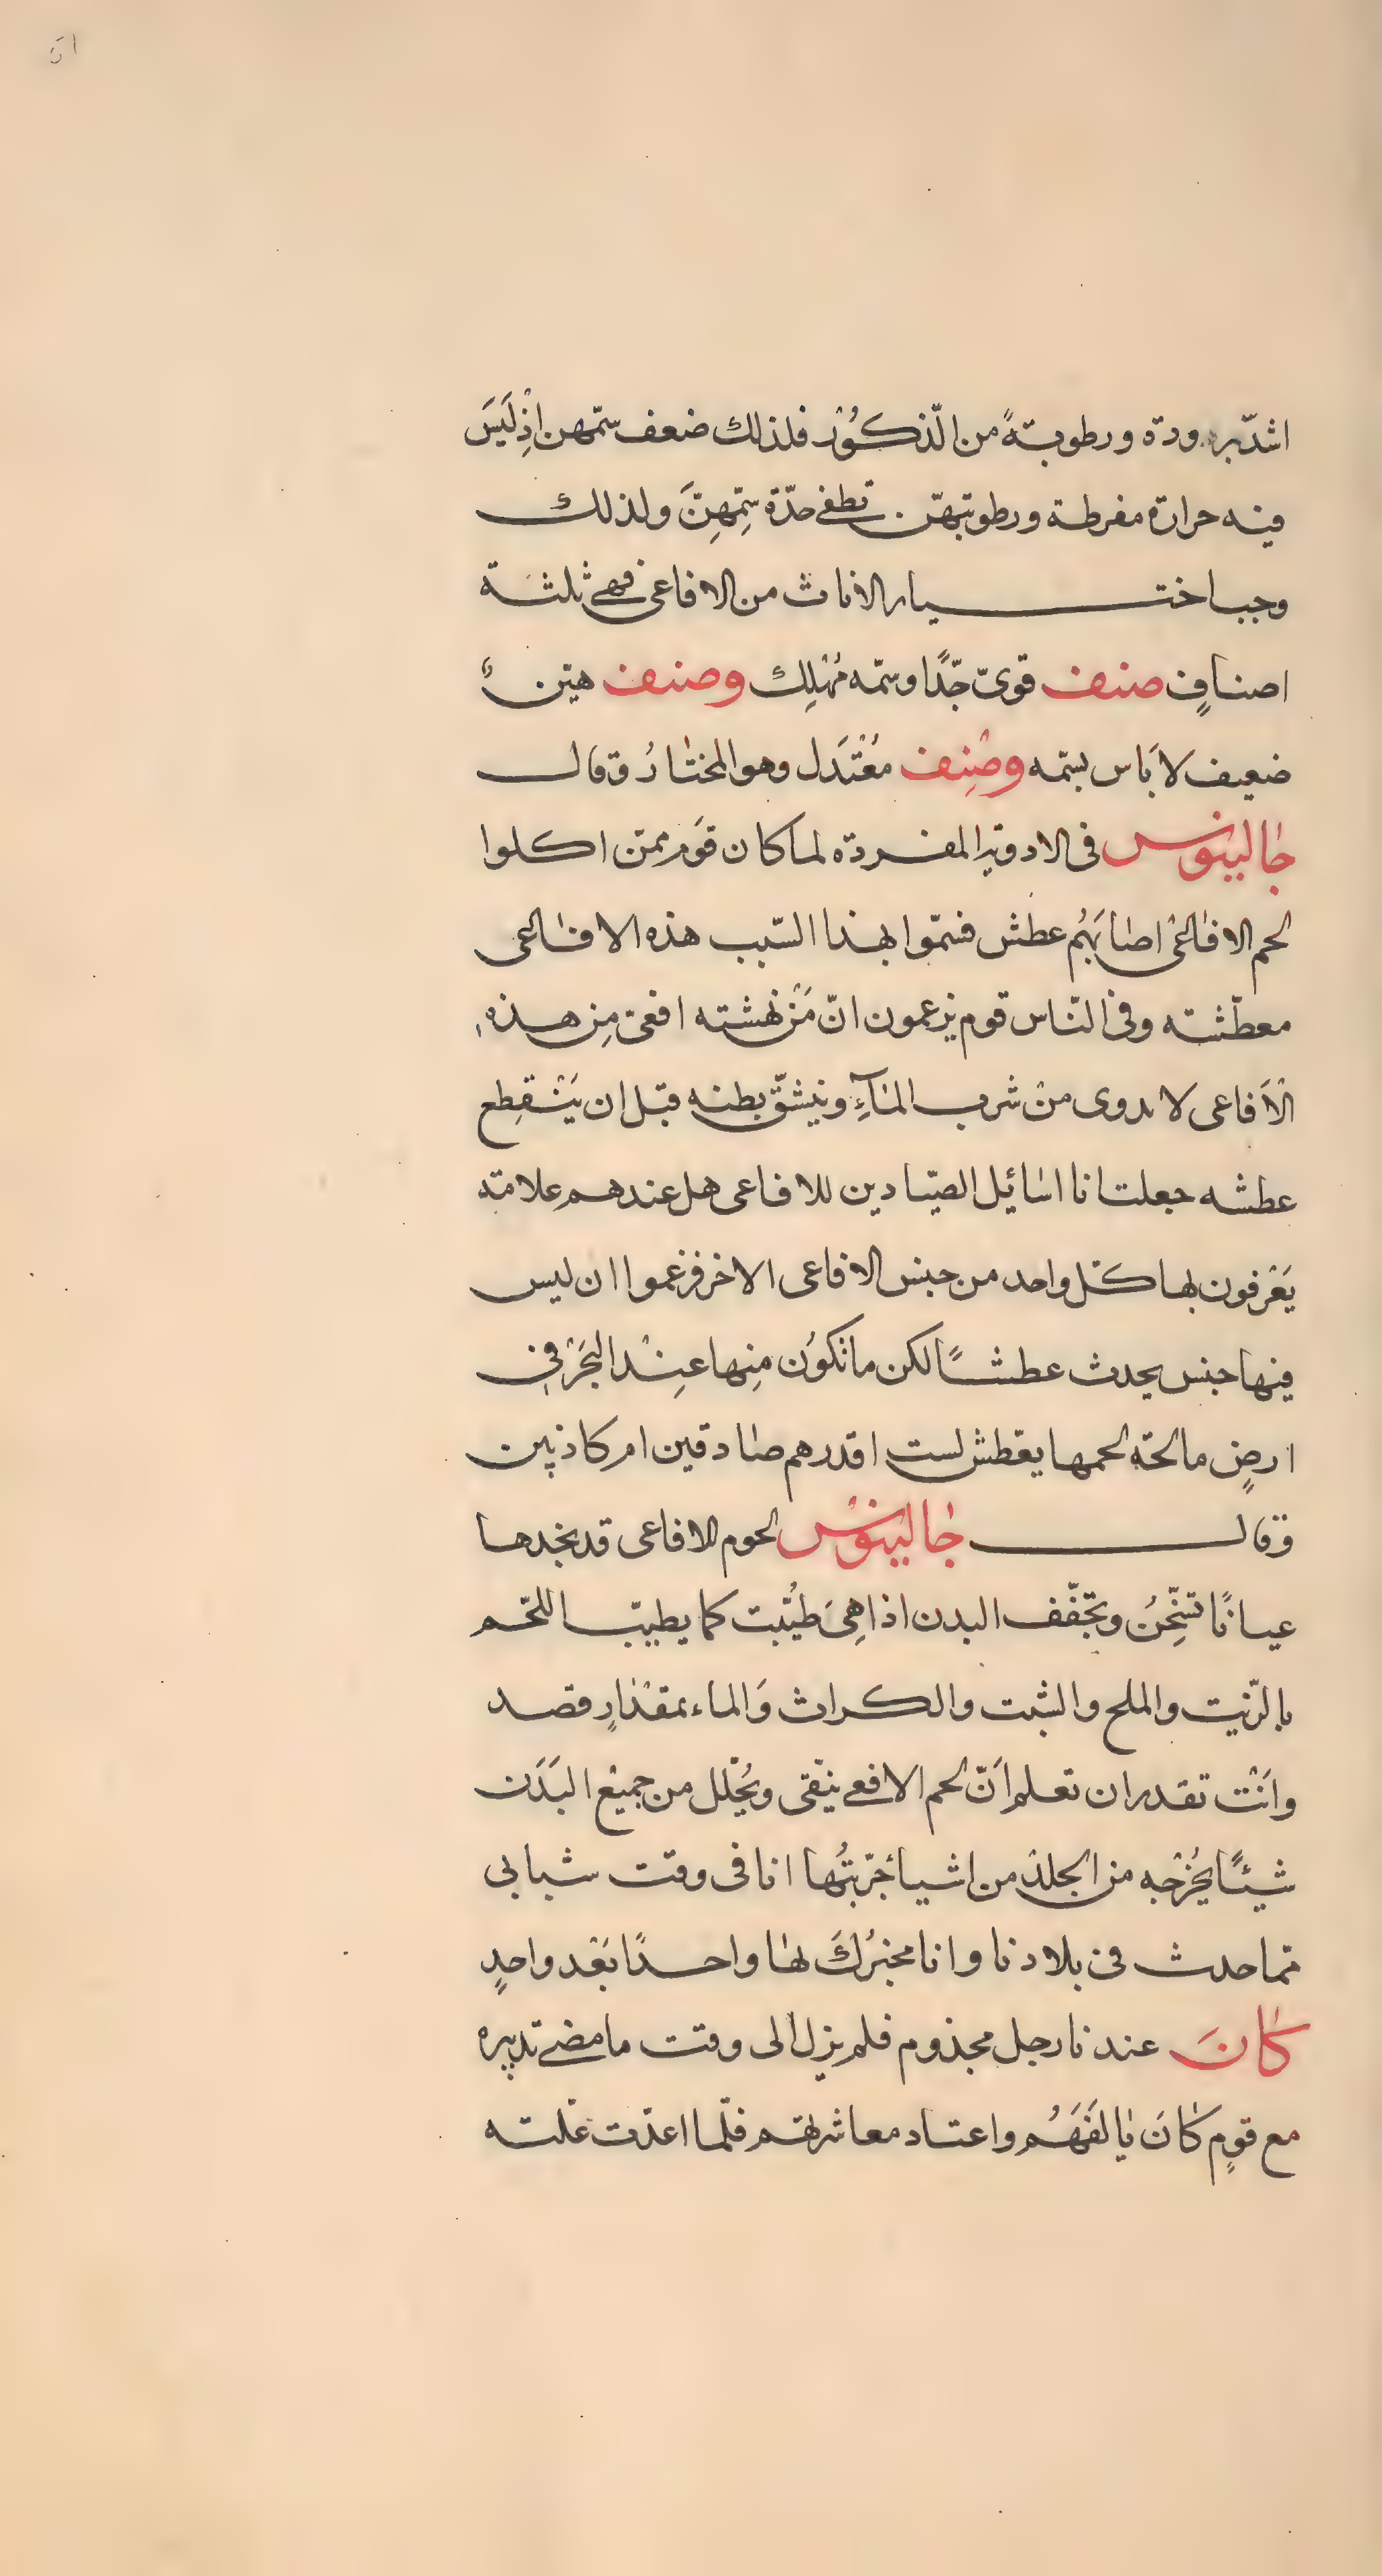 اشدّ برودة ورطوبةً من الّذكُوْر فلذلك ضعف سمّهن اذِْ لَيسَ
فيه حرارة مفرطة ورطوبتهنّ تطفى حدّة سمِّهِنَّ ولذلك
وجب اختيار الاناث من الافاعى فهى ثلثة
اصنافٍ صنف قوىّ جّدًا وسمّه مُهْلِك وصنف هيّنٌ
ضعيف لا بَاس بسمّه وصْنِف مُعْتَدَل وهو المختارُ وقال
جالينوس فى الادوية المفردة لما كان قَوم ممّن اكلوا
لحم الافاعى اصابَهُم عطش فسمّوا بهذا السّبب هذه الافاعى
معطّشته وفى النّاس قوم يزعمون انّ مَنْ نهشته افعى مِن هذه
الْاَفاعى لا يروى منْ شرب المآءِ وينشقّ بطنه قبل ان يَنْقطِع
عطشه جعلت انا اسائيل الصيّادين للافاعى هل عندهم علامة
يَعْرفون بها كلّ واحد من جنس الافاعى الاخر فزعموا ان ليس
فيها جنس يحدث عطشًا لكن ما تكوُن مِنها عِنْد البَحَرْ فِى
ارضٍ مالحة لحمها يعطش لست اقدرهم صادقين ام كاذبين
وقال جالينوس لحوم الافاعى قد نجدها
عيانًا تسخِّنُ وتجّفف البدن اذا هِىَ طيُّبت كما يطيّب اللحّم
بالزّيت والملح والشبت والكراث وَالماء بمقدارٍ قصد
وانَْت تقدر ان تعلم اَنّ لحم الافعى ينقّى ويُحْلل من جميْع البَدَن
شيئًا يُخْرْجه من الجلدْ من اشيا جّربتُها انا فى وقت شبابى
ممّا حدث فى بلادنا وانا مخبرُكَ بها واحدًا بَعْد واحدٍ
كانَ عندنا رجل مجذوم فلم يزل الى وقت ما مضى تدبيره
مع قومٍ كانَ يالفَهَُم واعتاد معاشرتهم فلّما اعدّت علّته